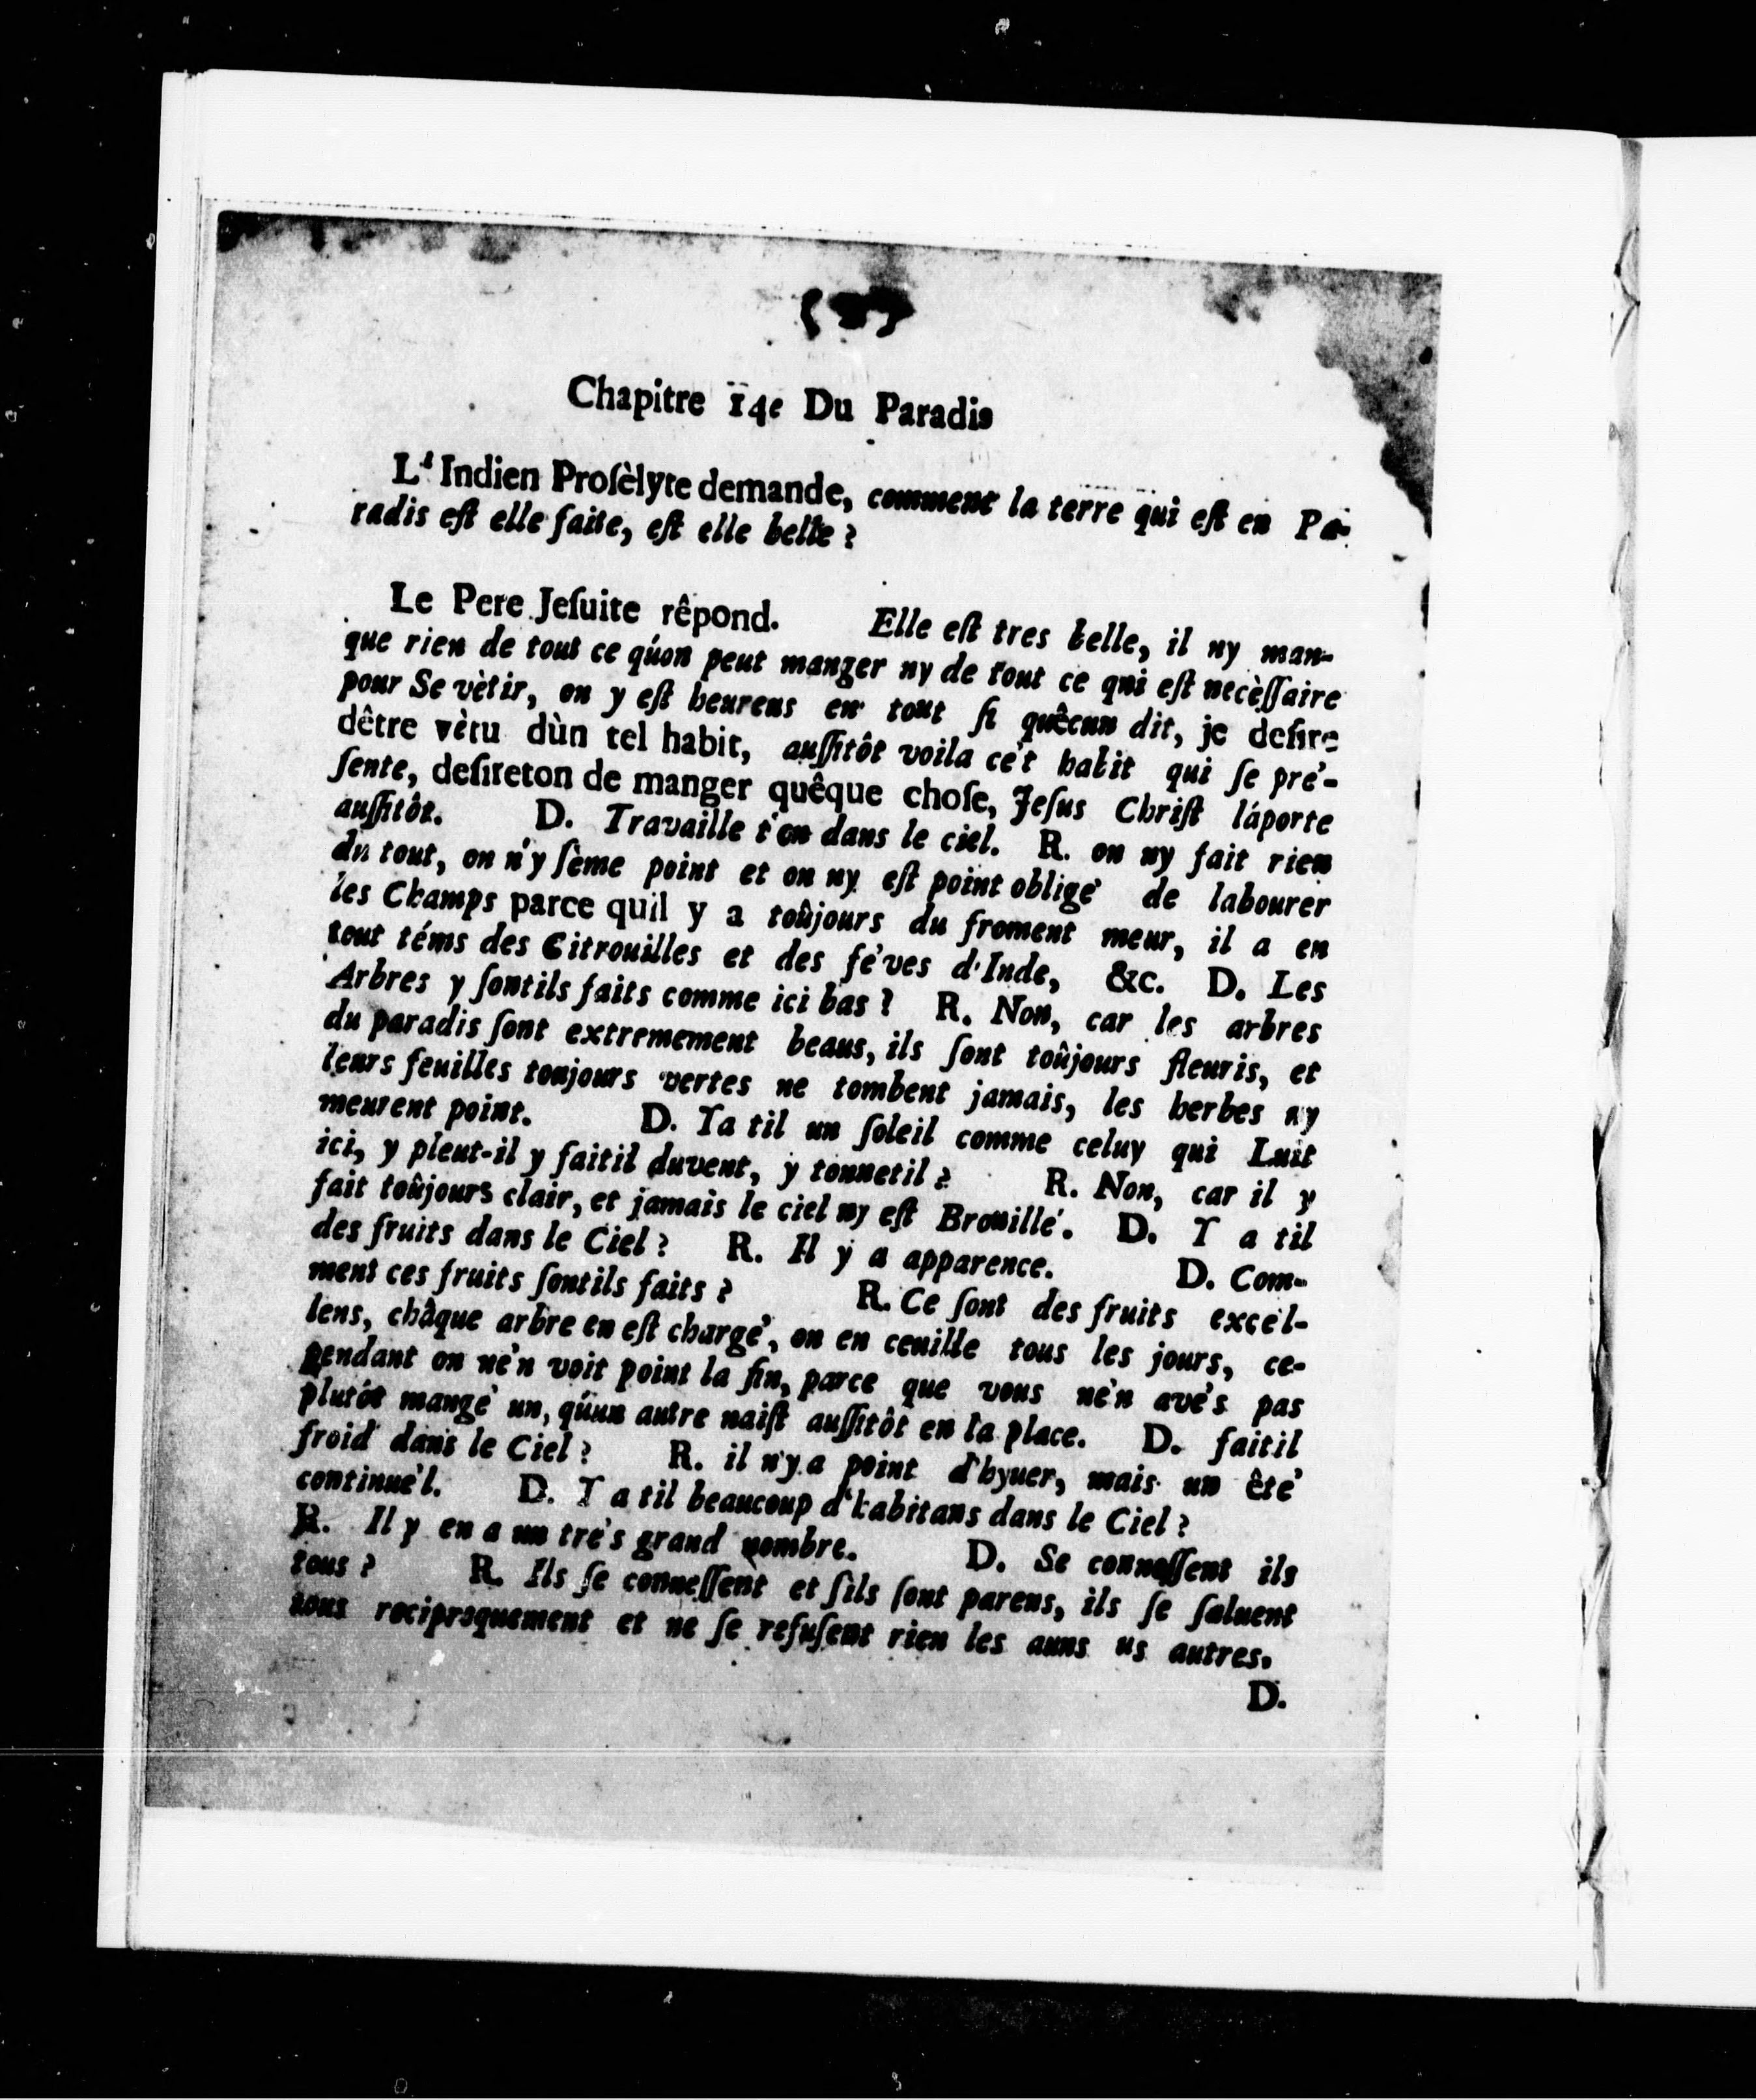 Chapitre 14e Du Paradis
L' Indien Proſèlyte demande, comment la terre qui eſt en Pa-
radis eſt elle faite, eſt elle belle ?
Le Pere Jeſuite rêpond. Elle eſt tres belle, il ny man-
que rien de tout ce qúon peut manger ny de tout ce qui eſt necèſſaire
pour Se vètir, on y eſt heureus en tout ſi quêcun dit, je deſire
dêtre vètu dùn tel habit, auſſitôt voila cét habit qui ſe pré-
ſente, deſireton de manger quêque choſe, Jeſus Chriſt láporte
auſſitôt. D. Travaille t'on dans le ciel. R. on ny fait rien
du tout, on n'y ſème point et on ny eſt point obligé de labourer
les Champs parce quil y a toûjours du froment meur, il a en
tout téms des Citrouilles et des féves d'Inde, &c. D. Les
Arbres y ſontils faits comme ici bas ? R. Non, car les arbres
du paradis ſont extrememment beaus, ils ſont toûjours fleuris, et
leurs feuilles toujours vertes ne tombent jamais, les herbes ny
meurent point. D. Ia til un ſoleil comme celuy qui Luit
ici, y pleut-il y faitil duvent, y tonnetil ? R. Non, car il y
fait toûjours clair, et jamais le ciel ny eſt Brouillé. D. I a til
des fruits dans le Ciel ? R. Il y a apparence. D. Com-
ment ces fruits ſontils faits ? R. Ce ſont des fruits excel-
lens, châque arbre en eſt chargé, on en ceuille tous les jours, ce-
pendant on né'n voit point la fin, parce que vous né'n avés pas
plutôt mangé un, qúun autre naiſt auſſitôt en ſa place. D. faitil
froid dans le Ciel ? R. il n'y a point d'hyuer, mais un êté
continuél. D. I a til beaucoup d'habitans dans le Ciel ?
R. Il y en a un trés grand nombre. D. Se conneſſent ils
tous ? R. Ils ſe conneſſent et ſils ſont parens, ils ſe ſaluent
tous reciproquement et ne ſe refuſent rien les auns us autres.
D.